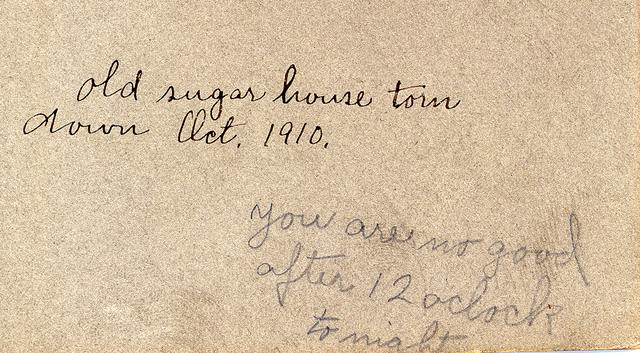 old sugar house torn
down Oct. 1910.
you are no good
after 12 oclock
to night